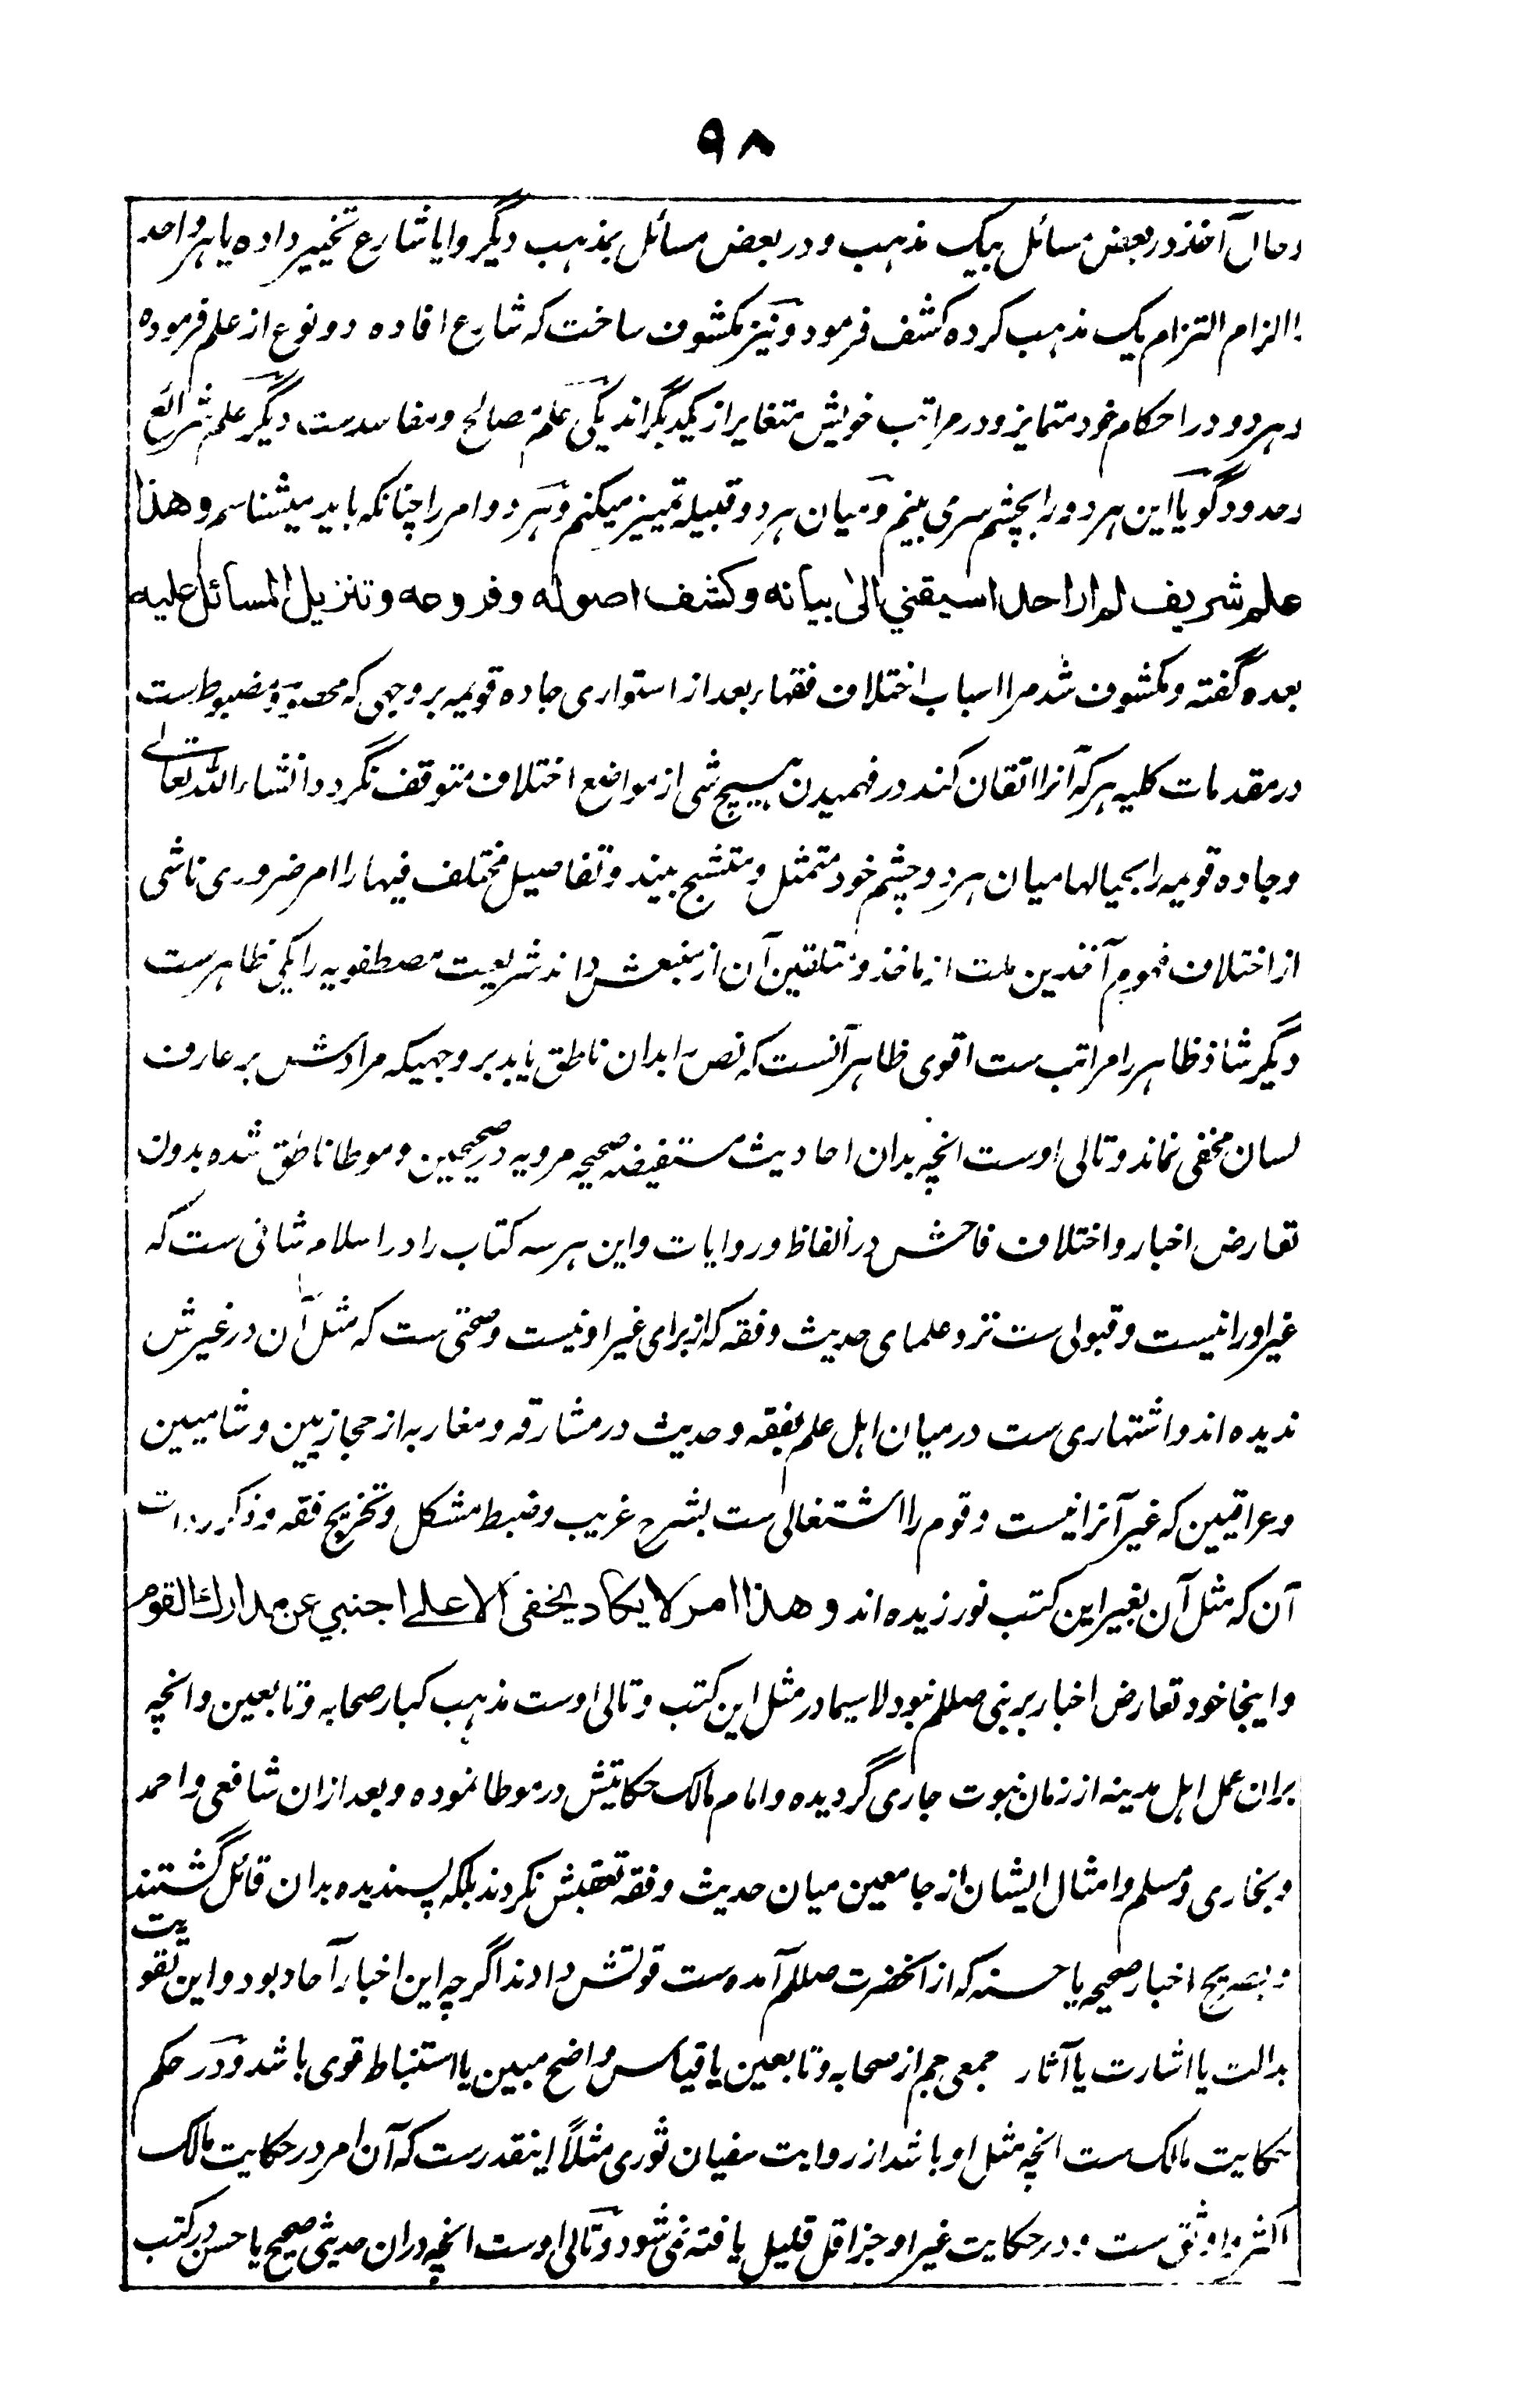 ۹۸
وحال آخذ در بعض مسائل بیک مذہب و در بعض مسائل بمذہب دیگر وایا شارع تخییر داده یا ہر واحد
را الزام التزام یک مذہب کرده کشف فرمود و نیز مکشوف ساخت که شارع افاده دو نوع از علم فرموده
و ہر دو در احکام خود متمایز و در مراتب خویش متغایر از یکدیگر اند یکی علم مصالح و مفاسدست دیگر علم شرائع
و حدود گویا این ہر دو را بچشم سر می بینم و میان ہر دو قبیله تمییز میکنم و ہر دو امر را چنانکه باید میشناسم وهذا
علم شریف لم ار احدا اسبقني الی بیانه وکشف اصوله وفروعه وتنزیل المسائل علیه
بعده گفته و مکشوف شد مرا اسباب اختلاف فقهاء بعد از استواری جاده قویمه بر وجهی که محصور و مضبوط ست
در مقدمات کلیه ہر که آنرا اتقان کند در فهمیدن ہیچ شی از مواضع اختلاف متوقف نگردد انشاء الله تعالے
و جاده قویمه را بحیالها میان ہر دو چشم خود متمثل و متشبح بیند و تفاصیل مختلف فیها را امر ضروری ناشی
از اختلاف فهوم آخذین ملت از ماخذ و متلقین آن از منبعش داند شریعت مصطفویه را یکی ظاہرست
دیگر شاذ ظاہر را مراتب ست اقوی ظاہر آنست که نص را بدان ناطق یابد بر وجهیکه مرادش بر عارف
لسان مخفی نماند و تالی اوست انچه بدان احادیث مستفیضه صحیحه مرویه در صحیحین و موطا ناطق شده بدون
تعارض اخبار و اختلاف فاحش در الفاظ و روایات و این ہر سه کتاب را در اسلام شانی ست که
غیر او را نیست و قبولی ست نزد علمای حدیث و فقه که از برای غیر او نیست و صحتی ست که مثل آن در غیرش
ندیده اند و اشتهاری ست درمیان اہل علم بفقه و حدیث در مشارقه و مغاربه از حجازیین و شامیین
و عراقیین که غیر آنرا نیست و قوم را اشتغالی ست بشرح غریب و ضبط مشکل و تخریج فقه و ذکر روات
آن که مثل آن بغیر این کتب نورزیده اند وهذا امر لا یکاد یخفی الا علے اجنبي عن مدارك القوم
و اینجا خود تعارض اخبار بر نبی صللم نبود لاسیما در مثل این کتب و تالی اوست مذہب کبار صحابه و تابعین و انچه
بران عمل اہل مدینه از زمان نبوت جاری گردیده و امام مالک حکایتش در موطا نموده و بعد ازان شافعی و احمد
و بخاری و مسلم و امثال ایشان از جامعین میان حدیث و فقه تعقبش نکردند بلکه پسندیده بدان قائل گشتند
و بصریح اخبار صحیحه یا حسنه که از آنحضرت صللم آمده ست قوتش دادند اگرچه این اخبار آحاد بود و این تقویت
بدالت یا اشارت یا آثار جمعی جم از صحابه و تابعین یا قیاس واضح مبین یا استنباط قوی باشد و در حکم
حکایت مالک ست انچه مثل او باشد از روایت سفیان ثوری مثلاً اینقدر ست که آن امر در حکایت مالک
اکثر و اوثق ست و در حکایت غیر او جز اقل قلیل یافته نمی شود و تالی اوست انچه دران حدیثی صحیح یا حسن در کتب